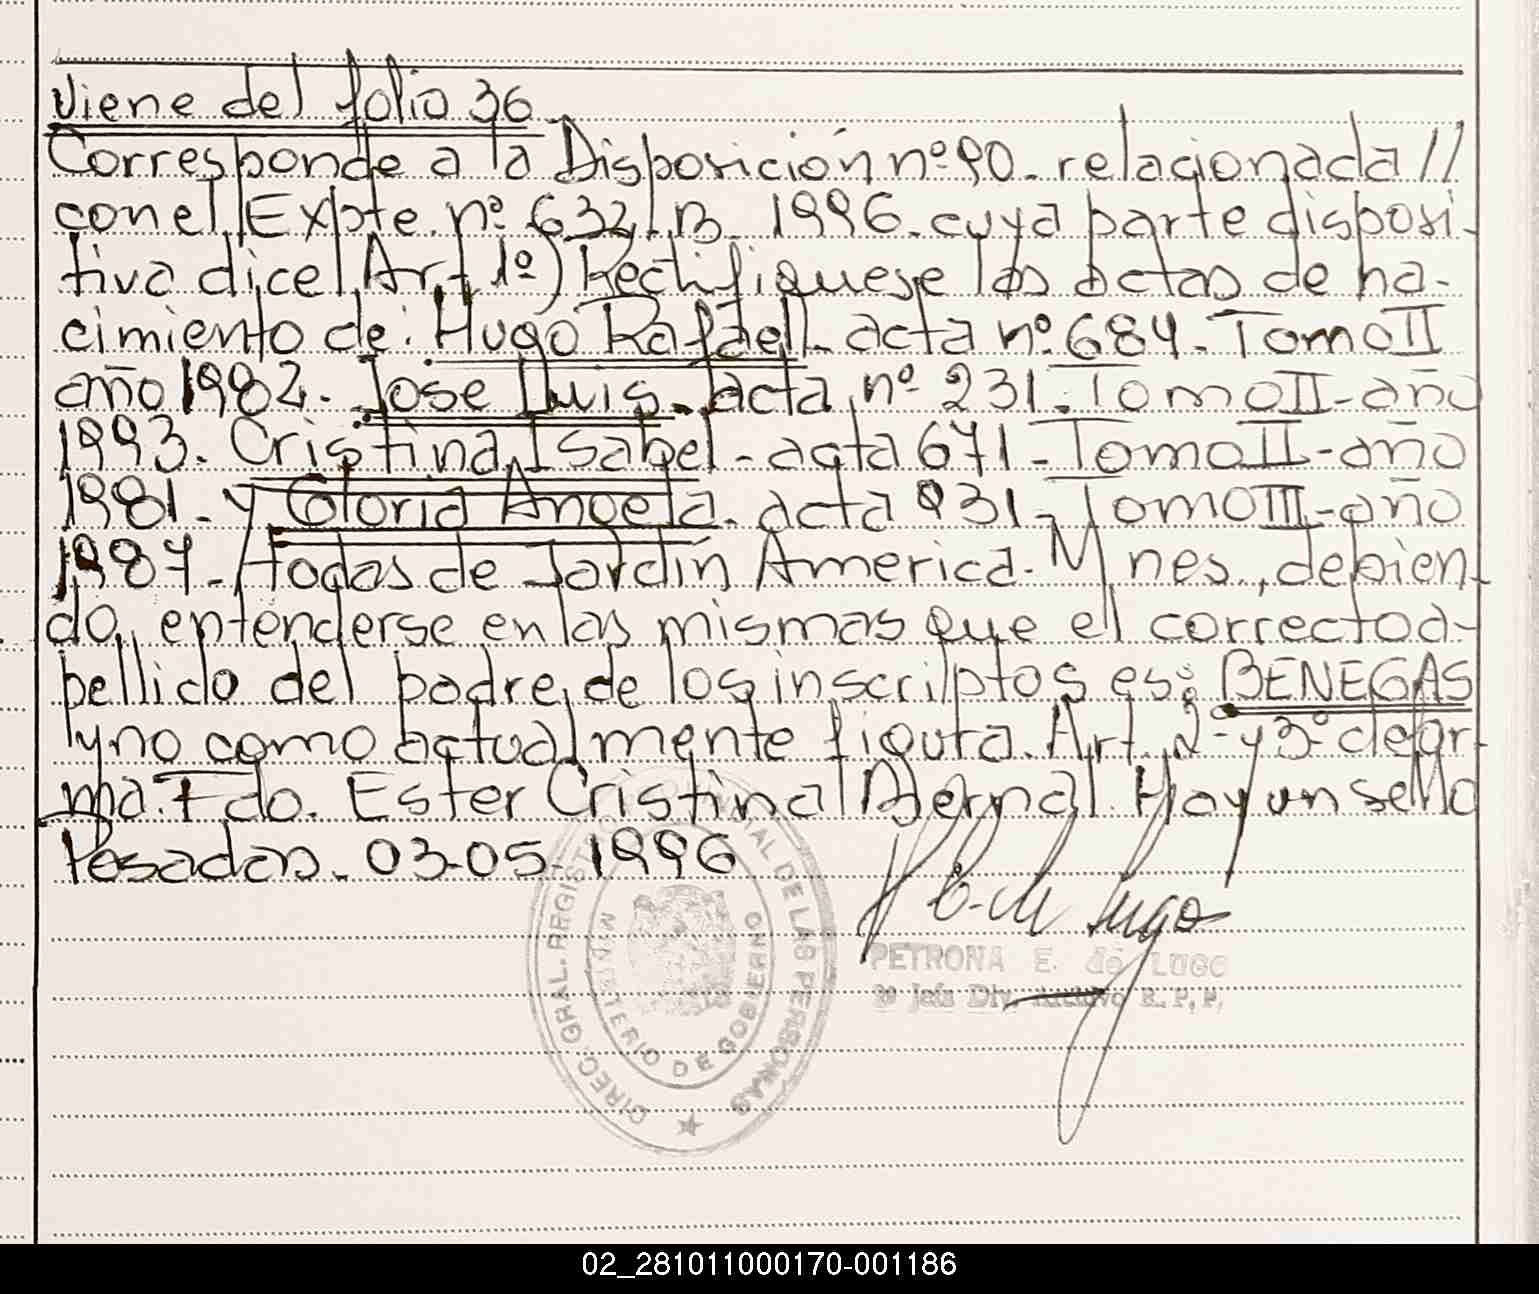 Viene del folio 36.
Corresponde a la Disposición nº 90. relacionada //
con el Expte. nº 632. B. 1996. cuya parte disposi-
tiva dice Art 1º) Rectifiquese las actas de na-
cimiento de: Hugo Rafael. acta nº 684. Tomo II
año 1982. Jose Luis. acta nº 231. Tomo II - año
1993. Cristina Isabel - acta 671 - Tomo II - año
1981. y Gloria Angela. acta 931 - Tomo III - año
1987. todas de Jardín America. Mnes, debien-
do, entenderse en las mismas que el correcto a-
pellido del padre de los inscriptos es: BENEGAS
y no como actualmente figura. Art. 2º y 3º de for-
ma. Fdo. Ester Cristina Bernal Hay un sello
Posadas. 03-05-1996
DIREC. GRAL. REGISTRO PROVINCIAL DE LAS PERSONAS
MINISTERIO DE GOBIERNO
P. E. de Lugo
PETRONA E. de LUGO
Jefe Div. Archivo R. P. P.
02_281011000170-001186